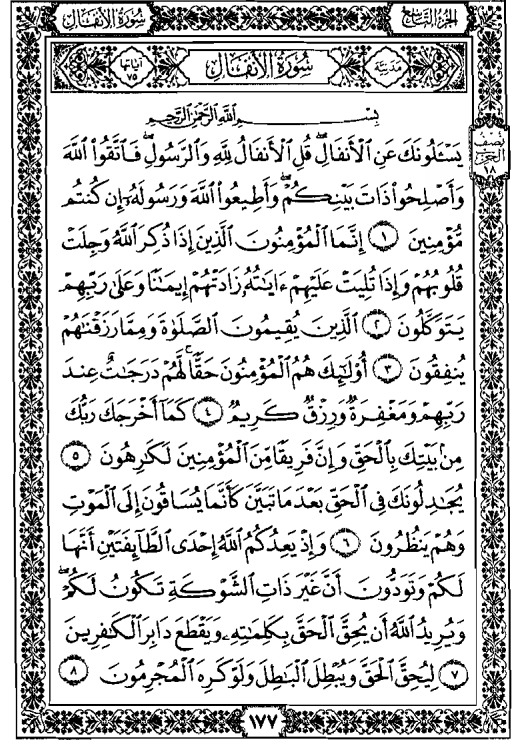 الجزء التاسع
سورة الأنفال
مدنية
سورة الأنفال
آياتها ٧٥
نصف الحزب ١٨
بِسْمِ اللَّهِ الرَّحْمَٰنِ الرَّحِيمِ
يَسْـَٔلُونَكَ عَنِ ٱلْأَنفَالِۖ قُلِ ٱلْأَنفَالُ لِلَّهِ وَٱلرَّسُولِۖ فَٱتَّقُوا۟ ٱللَّهَ
وَأَصْلِحُوا۟ ذَاتَ بَيْنِكُمْۖ وَأَطِيعُوا۟ ٱللَّهَ وَرَسُولَهُۥٓ إِن كُنتُم
مُّؤْمِنِينَ ١ إِنَّمَا ٱلْمُؤْمِنُونَ ٱلَّذِينَ إِذَا ذُكِرَ ٱللَّهُ وَجِلَتْ
قُلُوبُهُمْ وَإِذَا تُلِيَتْ عَلَيْهِمْ ءَايَٰتُهُۥ زَادَتْهُمْ إِيمَٰنًا وَعَلَىٰ رَبِّهِمْ
يَتَوَكَّلُونَ ٢ ٱلَّذِينَ يُقِيمُونَ ٱلصَّلَوٰةَ وَمِمَّا رَزَقْنَٰهُمْ
يُنفِقُونَ ٣ أُو۟لَٰٓئِكَ هُمُ ٱلْمُؤْمِنُونَ حَقًّاۚ لَّهُمْ دَرَجَٰتٌ عِندَ
رَبِّهِمْ وَمَغْفِرَةٌ وَرِزْقٌ كَرِيمٌ ٤ كَمَآ أَخْرَجَكَ رَبُّكَ
مِنۢ بَيْتِكَ بِٱلْحَقِّ وَإِنَّ فَرِيقًا مِّنَ ٱلْمُؤْمِنِينَ لَكَٰرِهُونَ ٥
يُجَٰدِلُونَكَ فِى ٱلْحَقِّ بَعْدَ مَا تَبَيَّنَ كَأَنَّمَا يُسَاقُونَ إِلَى ٱلْمَوْتِ
وَهُمْ يَنظُرُونَ ٦ وَإِذْ يَعِدُكُمُ ٱللَّهُ إِحْدَى ٱلطَّآئِفَتَيْنِ أَنَّهَا
لَكُمْ وَتَوَدُّونَ أَنَّ غَيْرَ ذَاتِ ٱلشَّوْكَةِ تَكُونُ لَكُمْ
وَيُرِيدُ ٱللَّهُ أَن يُحِقَّ ٱلْحَقَّ بِكَلِمَٰتِهِۦ وَيَقْطَعَ دَابِرَ ٱلْكَٰفِرِينَ
٧ لِيُحِقَّ ٱلْحَقَّ وَيُبْطِلَ ٱلْبَٰطِلَ وَلَوْ كَرِهَ ٱلْمُجْرِمُونَ ٨
١٧٧